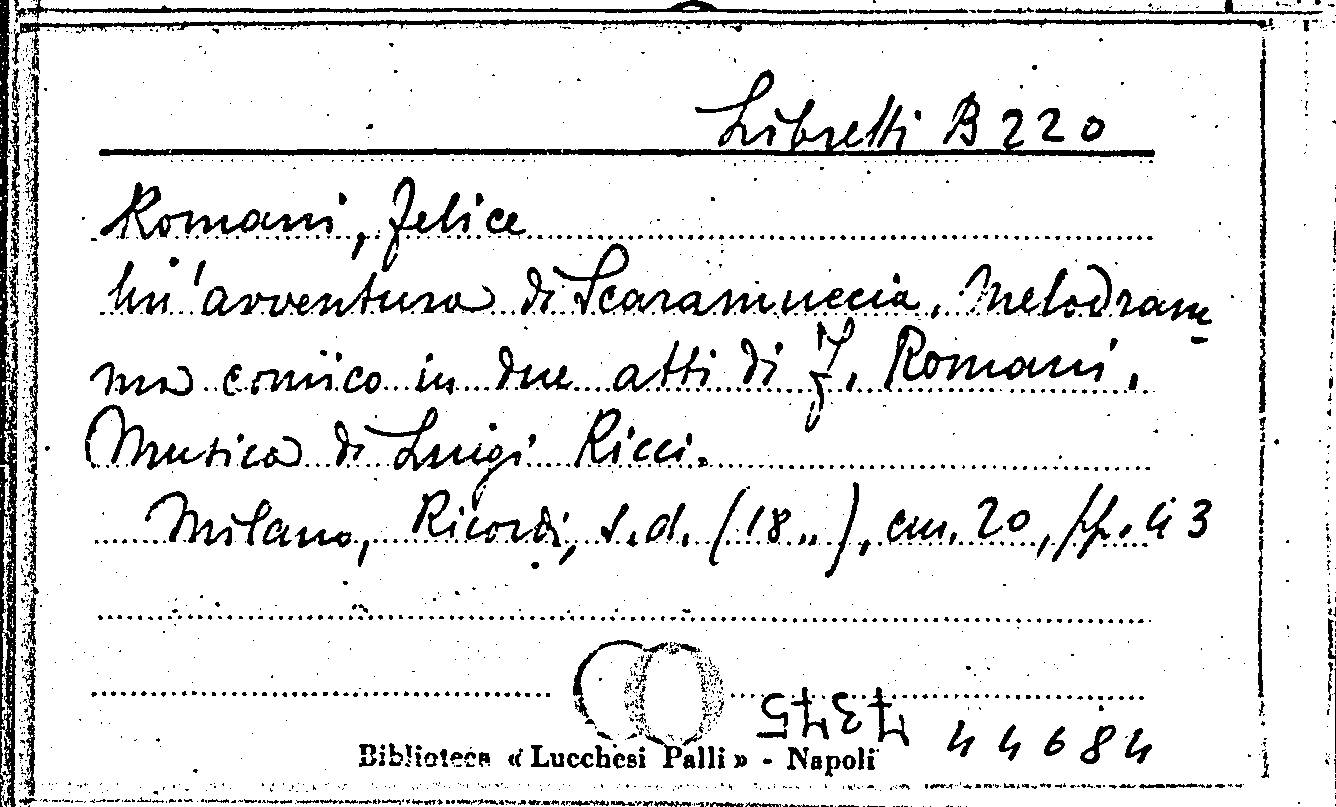 Libretti B 220
Romani, Felice
Un'avventura di Scaramuccia. Melodram-
ma comico in due atti di F. Romani.
Musica di Luigi Ricci.
Milano, Ricordi, s.d. (18..), cm. 20, pp. 43
7345
44684
Biblioteca « Lucchesi Palli » - Napoli